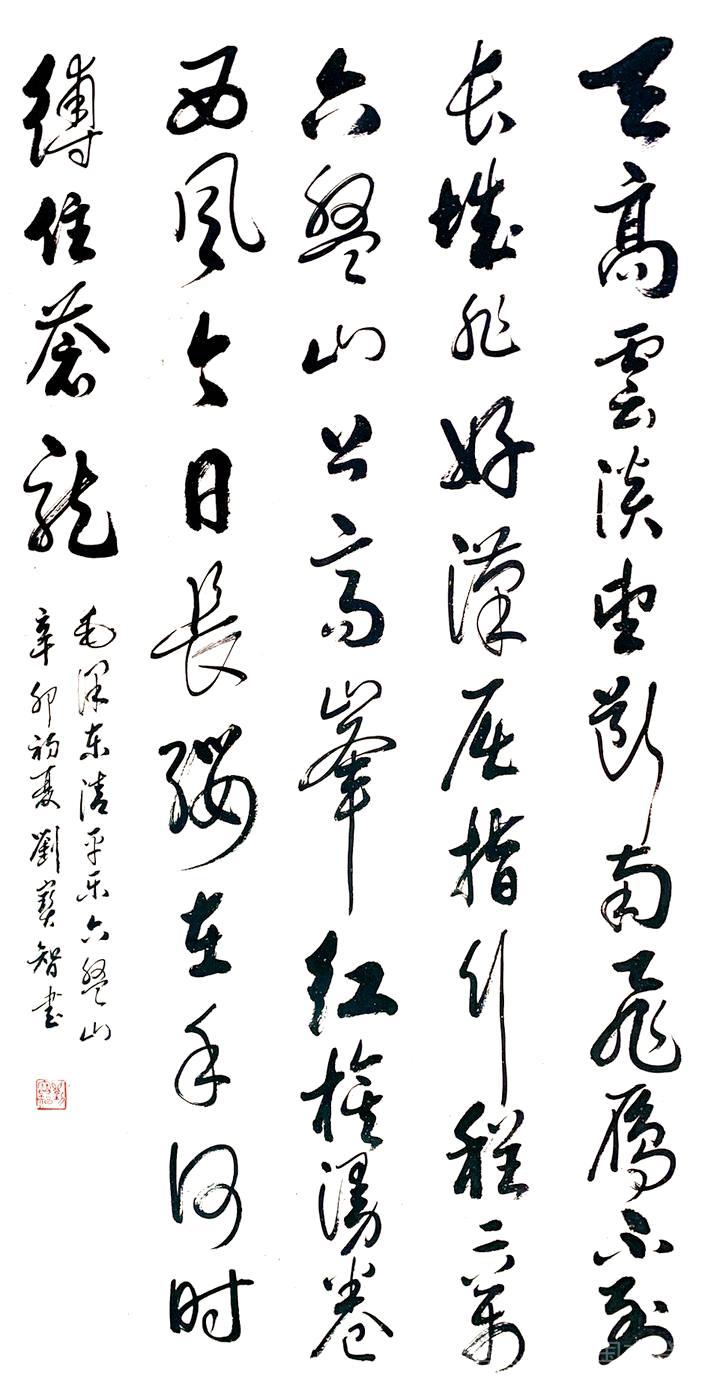 天高雲淡望斷南飛雁不到
长城非好漢屈指行程二萬
六盤山上高峯红旗漫卷
西风今日長纓在手何时
縛住蒼龍
毛澤东清平乐六盤山
辛卯初夏劉寶智书